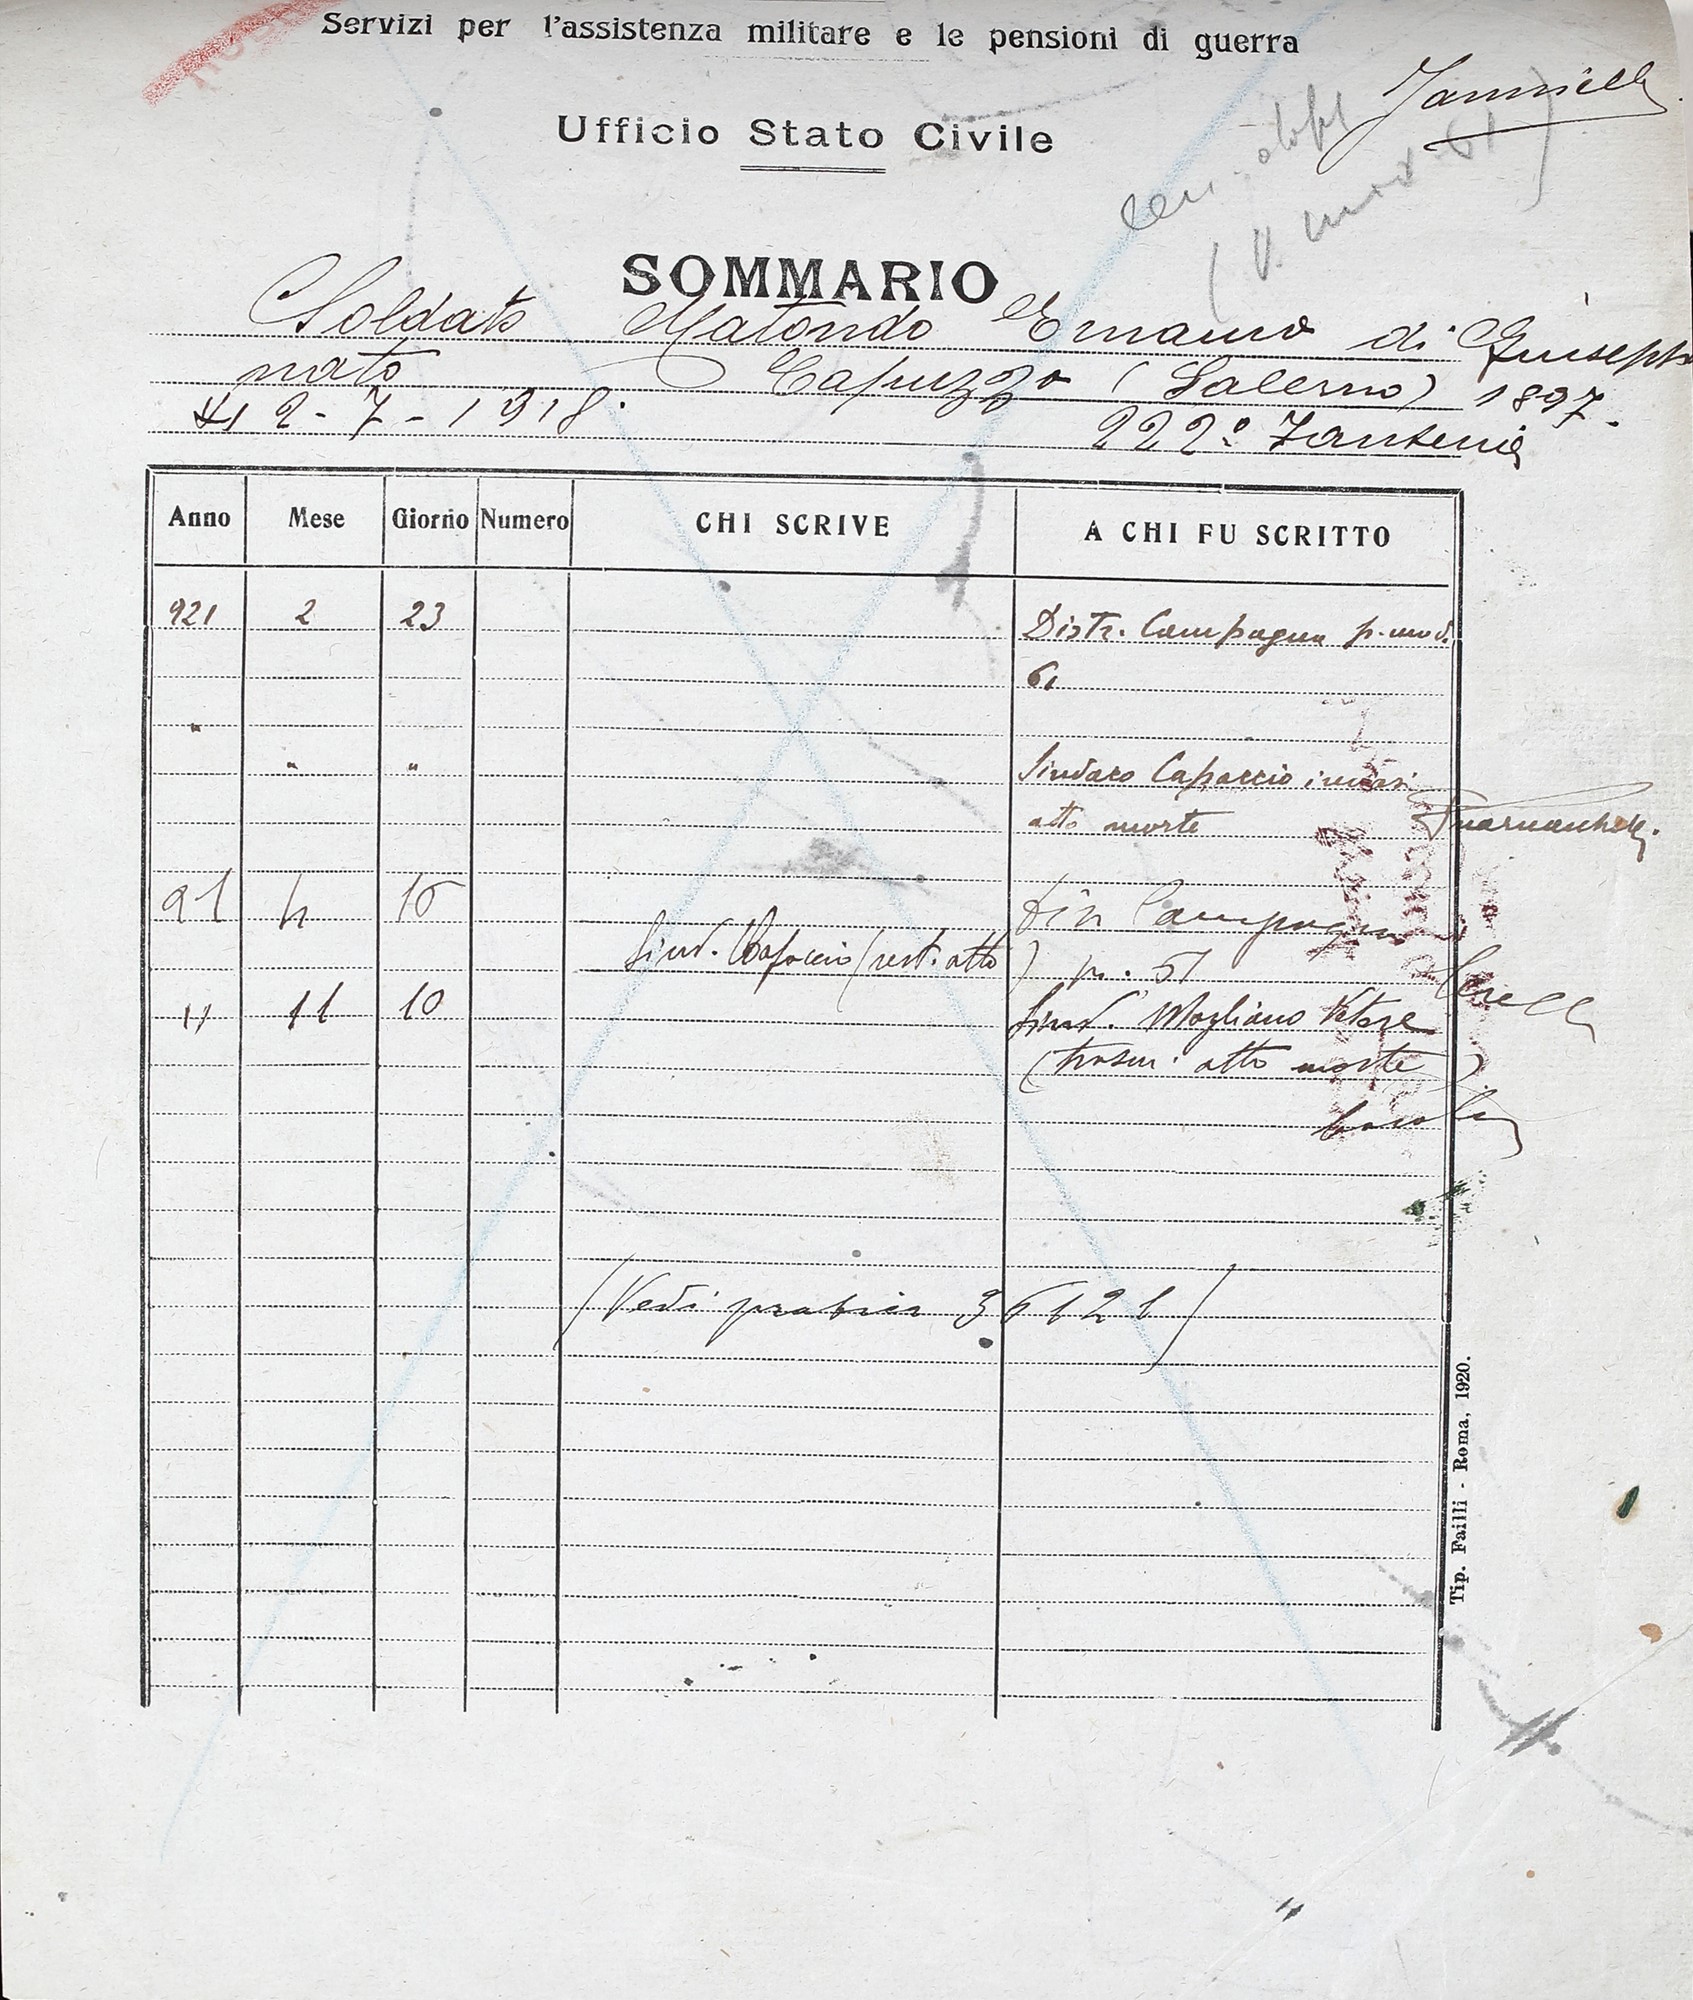 Servizi per l'assistenza militare e le pensioni di guerra
Ufficio Stato Civile
SOMMARIO
Soldato Matondo di Giuseppe
nato Capuzzo (Salerno) 1897.
12-7-1918. 222º Fanteria
Anno Mese Giorno Numero CHI SCRIVE A CHI FU SCRITTO
921 2 23 Distr. Campagna p. mod.
61
" " " Sindaco Capaccio
atto morte
21 4 Campagna
Sind. Capaccio (rest. atto)
" 11 10 Sind. Magliano Vetere
(trascr. atto morte)
(Vedi pratica 36121)
Tip. Failli - Roma, 1920.